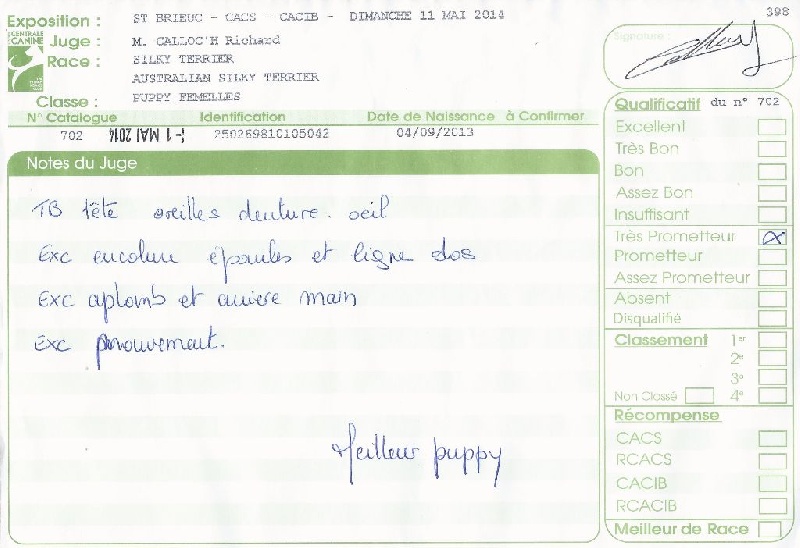 398
Exposition : ST BRIEUC - CACS - CACIB - DIMANCHE 11 MAI 2014
CENTRALE
CANINE
Juge : M. CALLOC'H Richard
Race : SILKY TERRIER
AUSTRALIAN SILKY TERRIER
Classe : PUPPY FEMELLES
N° Catalogue Identification Date de Naissance à Confirmer
702 1- MAI 2014 250269810105042 04/09/2013
Notes du Juge
TB tête oreilles denture oeil
Exc encolure épaules et ligne dos
Exc aplomb et arriere main
Exc mouvement.
Meilleur puppy
Signature :
Qualificatif du n° 702
Excellent
Très Bon
Bon
Assez Bon
Insuffisant
Très Prometteur X
Prometteur
Assez Prometteur
Absent
Disqualifié
Classement 1er
2e
3e
Non Classé 4e
Récompense
CACS
RCACS
CACIB
RCACIB
Meilleur de Race